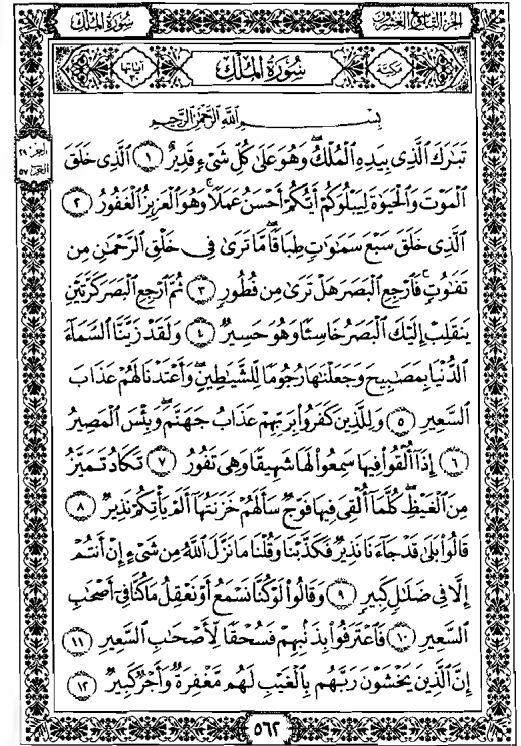 الجزء التاسع والعشرون
سورة الملك
مكية
سُورَةُ الْمُلْكِ
آياتها
بِسْمِ اللَّهِ الرَّحْمَٰنِ الرَّحِيمِ
تَبَٰرَكَ الَّذِي بِيَدِهِ الْمُلْكُ وَهُوَ عَلَىٰ كُلِّ شَيْءٍ قَدِيرٌ ١ الَّذِي خَلَقَ
الْمَوْتَ وَالْحَيَوٰةَ لِيَبْلُوَكُمْ أَيُّكُمْ أَحْسَنُ عَمَلًا وَهُوَ الْعَزِيزُ الْغَفُورُ ٢
الَّذِي خَلَقَ سَبْعَ سَمَٰوَٰتٍ طِبَاقًا مَّا تَرَىٰ فِي خَلْقِ الرَّحْمَٰنِ مِن
تَفَٰوُتٍ فَارْجِعِ الْبَصَرَ هَلْ تَرَىٰ مِن فُطُورٍ ٣ ثُمَّ ارْجِعِ الْبَصَرَ كَرَّتَيْنِ
يَنقَلِبْ إِلَيْكَ الْبَصَرُ خَاسِئًا وَهُوَ حَسِيرٌ ٤ وَلَقَدْ زَيَّنَّا السَّمَاءَ
الدُّنْيَا بِمَصَٰبِيحَ وَجَعَلْنَٰهَا رُجُومًا لِّلشَّيَٰطِينِ وَأَعْتَدْنَا لَهُمْ عَذَابَ
السَّعِيرِ ٥ وَلِلَّذِينَ كَفَرُوا بِرَبِّهِمْ عَذَابُ جَهَنَّمَ وَبِئْسَ الْمَصِيرُ
٦ إِذَا أُلْقُوا فِيهَا سَمِعُوا لَهَا شَهِيقًا وَهِيَ تَفُورُ ٧ تَكَادُ تَمَيَّزُ
مِنَ الْغَيْظِ كُلَّمَا أُلْقِيَ فِيهَا فَوْجٌ سَأَلَهُمْ خَزَنَتُهَا أَلَمْ يَأْتِكُمْ نَذِيرٌ ٨
قَالُوا بَلَىٰ قَدْ جَاءَنَا نَذِيرٌ فَكَذَّبْنَا وَقُلْنَا مَا نَزَّلَ اللَّهُ مِن شَيْءٍ إِنْ أَنتُمْ
إِلَّا فِي ضَلَٰلٍ كَبِيرٍ ٩ وَقَالُوا لَوْ كُنَّا نَسْمَعُ أَوْ نَعْقِلُ مَا كُنَّا فِي أَصْحَٰبِ
السَّعِيرِ ١٠ فَاعْتَرَفُوا بِذَنبِهِمْ فَسُحْقًا لِّأَصْحَٰبِ السَّعِيرِ ١١
إِنَّ الَّذِينَ يَخْشَوْنَ رَبَّهُم بِالْغَيْبِ لَهُم مَّغْفِرَةٌ وَأَجْرٌ كَبِيرٌ ١٢
٥٦٢